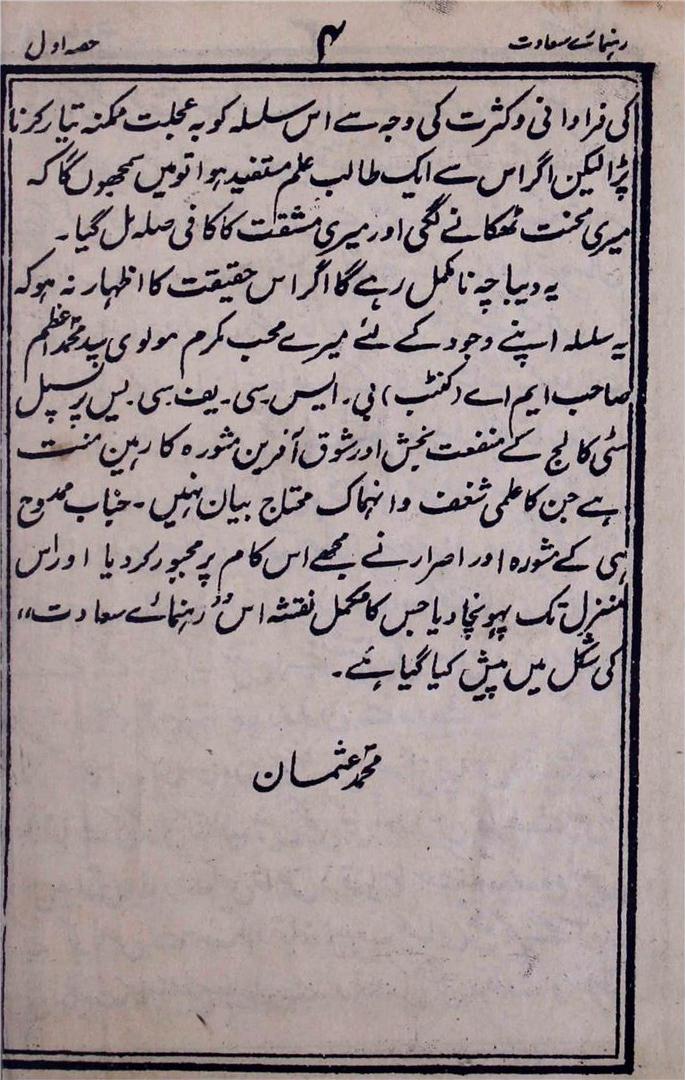 رہنمائے سعادت
۴
حصہ اول
کی فراوانی و کثرت کی وجہ سے اس سلسلہ کو بہ عجلت ممکنہ تیار کرنا
پڑا لیکن اگر اس سے ایک طالب علم مستفید ہوا تو میں سمجھوں گا کہ
میری محنت ٹھکانے لگی اور میری مشقت کا کافی صلہ مل گیا۔
یہ دیباچہ نامکمل رہے گا اگر اس حقیقت کا اظہار نہ ہو کہ
یہ سلسلہ اپنے وجود کے لئے میرے محب مکرم مولوی سید محمد اعظم
صاحب ایم اے (کنٹب) بی۔ ایس۔ سی۔ یف۔ سی۔ یس پرنسپل
سٹی کالج کے منفعت بخش اور شوق آفرین مشورہ کا رہین منت
ہے جن کا علمی شغف و انہماک محتاج بیان نہیں۔ جناب ممدوح
ہی کے مشورہ اور اصرار نے مجھے اس کام پر مجبور کر دیا اور اس
منزل تک پہونچا دیا جس کا مکمل نقشہ اس "رہنمائے سعادت"
کی شکل میں پیش کیا گیا ہے۔
محمد عثمان